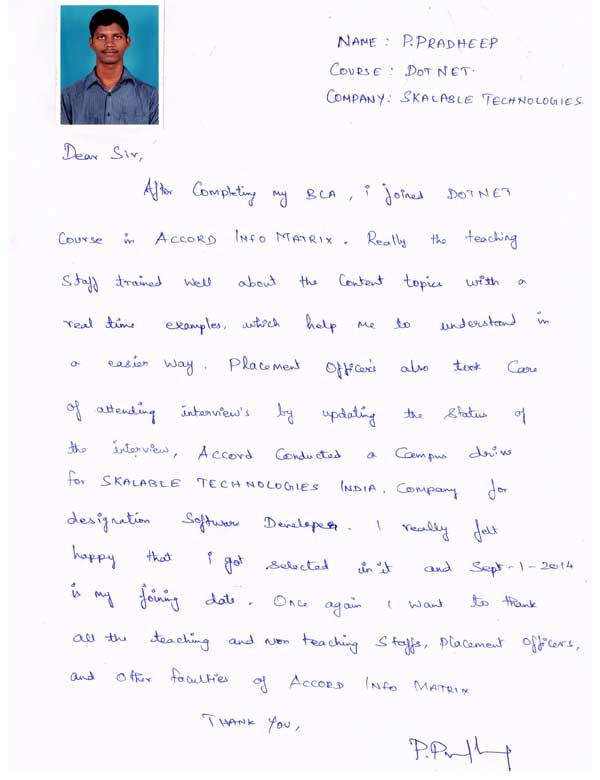 NAME : P.PRADHEEP
COURSE : DOT NET.
COMPANY: SKALABLE TECHNOLOGIES.
Dear Sir,
After Completing my BCA, i joined DOTNET
Course in ACCORD INFO MATRIX. Really the teaching
Staff trained well about the Content topics with a
real time examples, which help me to understand in
a easier way. Placement Officer's also took Care
of attending interview's by updating the Status of
the interview, Accord Conducted a Campus drive
for SKALABLE TECHNOLOGIES INDIA. Company for
designation Software Developer. I really felt
happy that i got selected in it and Sept-1-2014
is my joining date. Once again I want to thank
all the teaching and non teaching Staffs, Placement Officers,
and other faculties of ACCORD INFO MATRIX
THANK YOU,